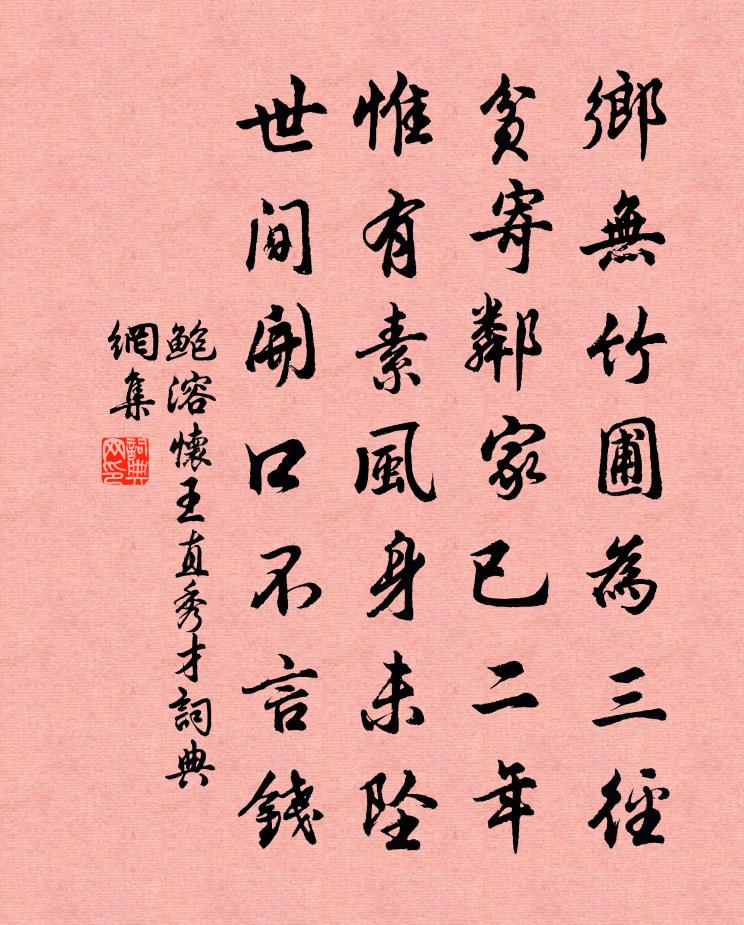 鄉無竹圃為三徑
貧寄鄰家已二年
惟有素風身未墜
世間開口不言錢
鮑溶懷王直秀才詞典
網集
詞典網印